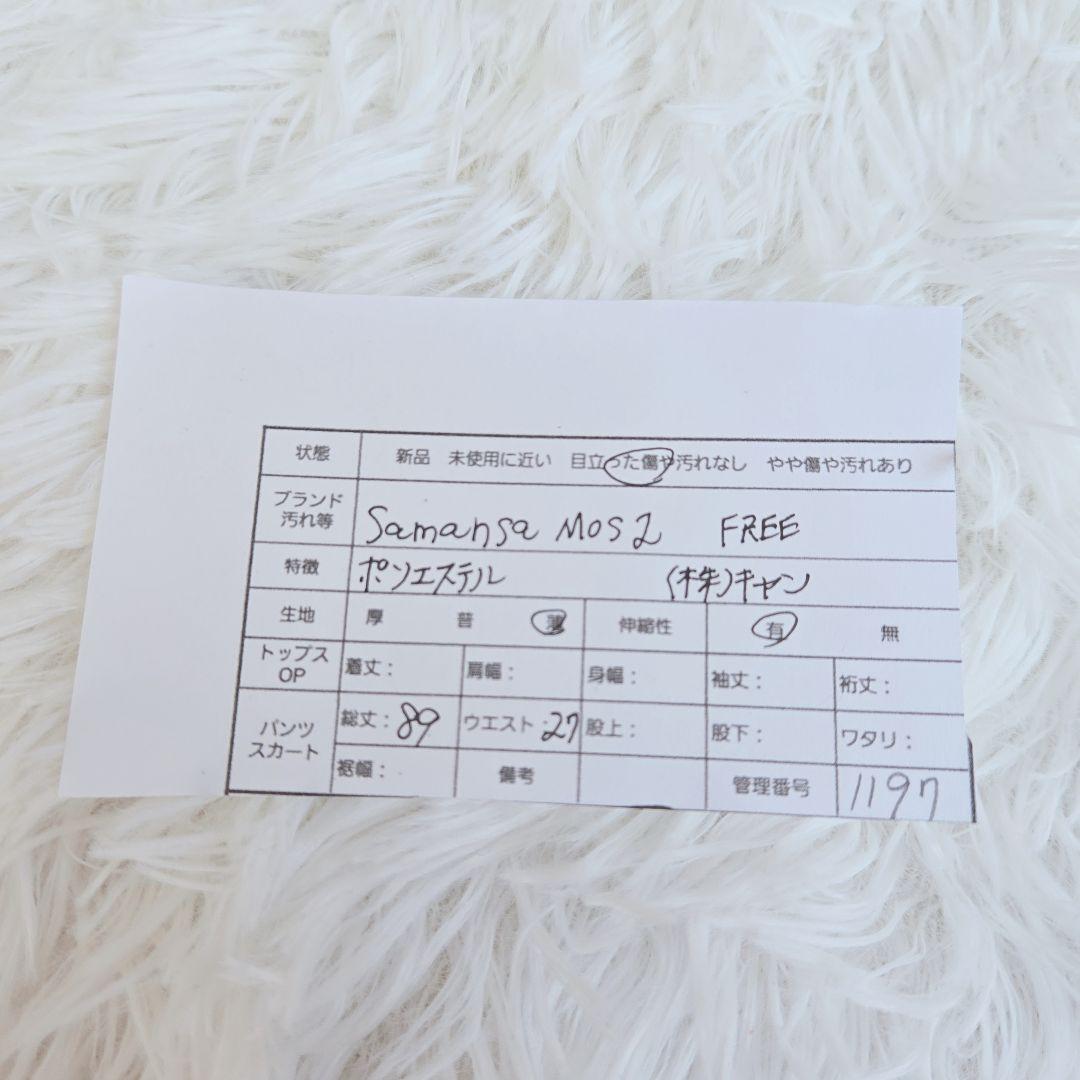 状態 新品 未使用に近い 目立った傷や汚れなし やや傷や汚れあり
ブランド 汚れ等 Samansa MOS2 FREE
特徴 ポリエステル (株)キャン
生地 厚 普 薄 伸縮性 有 無
トップス OP 着丈: 肩幅: 身幅: 袖丈: 裄丈:
パンツ スカート 総丈: 89 ウエスト: 27 股上: 股下: ワタリ:
裾幅: 備考 管理番号 1197